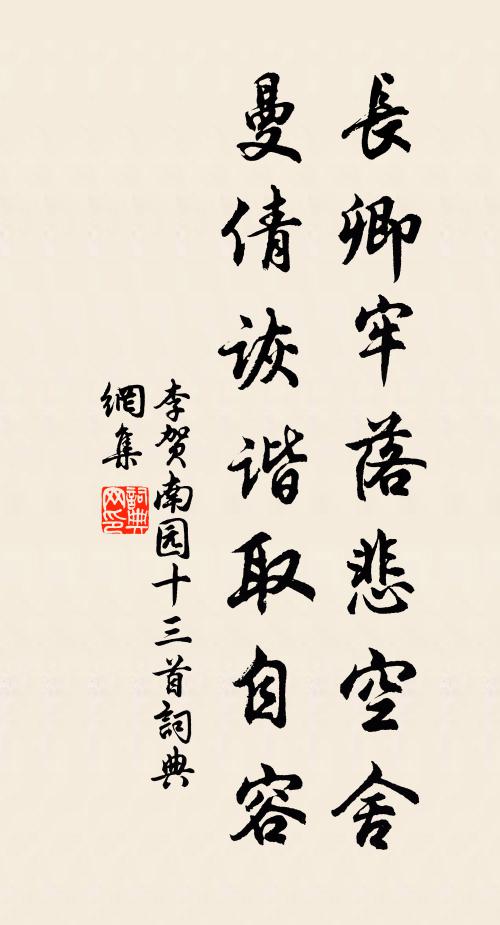 長卿牢落悲空舍
曼倩诙谐取自容
李贺南园十三首詞典
網集
詞典
网印